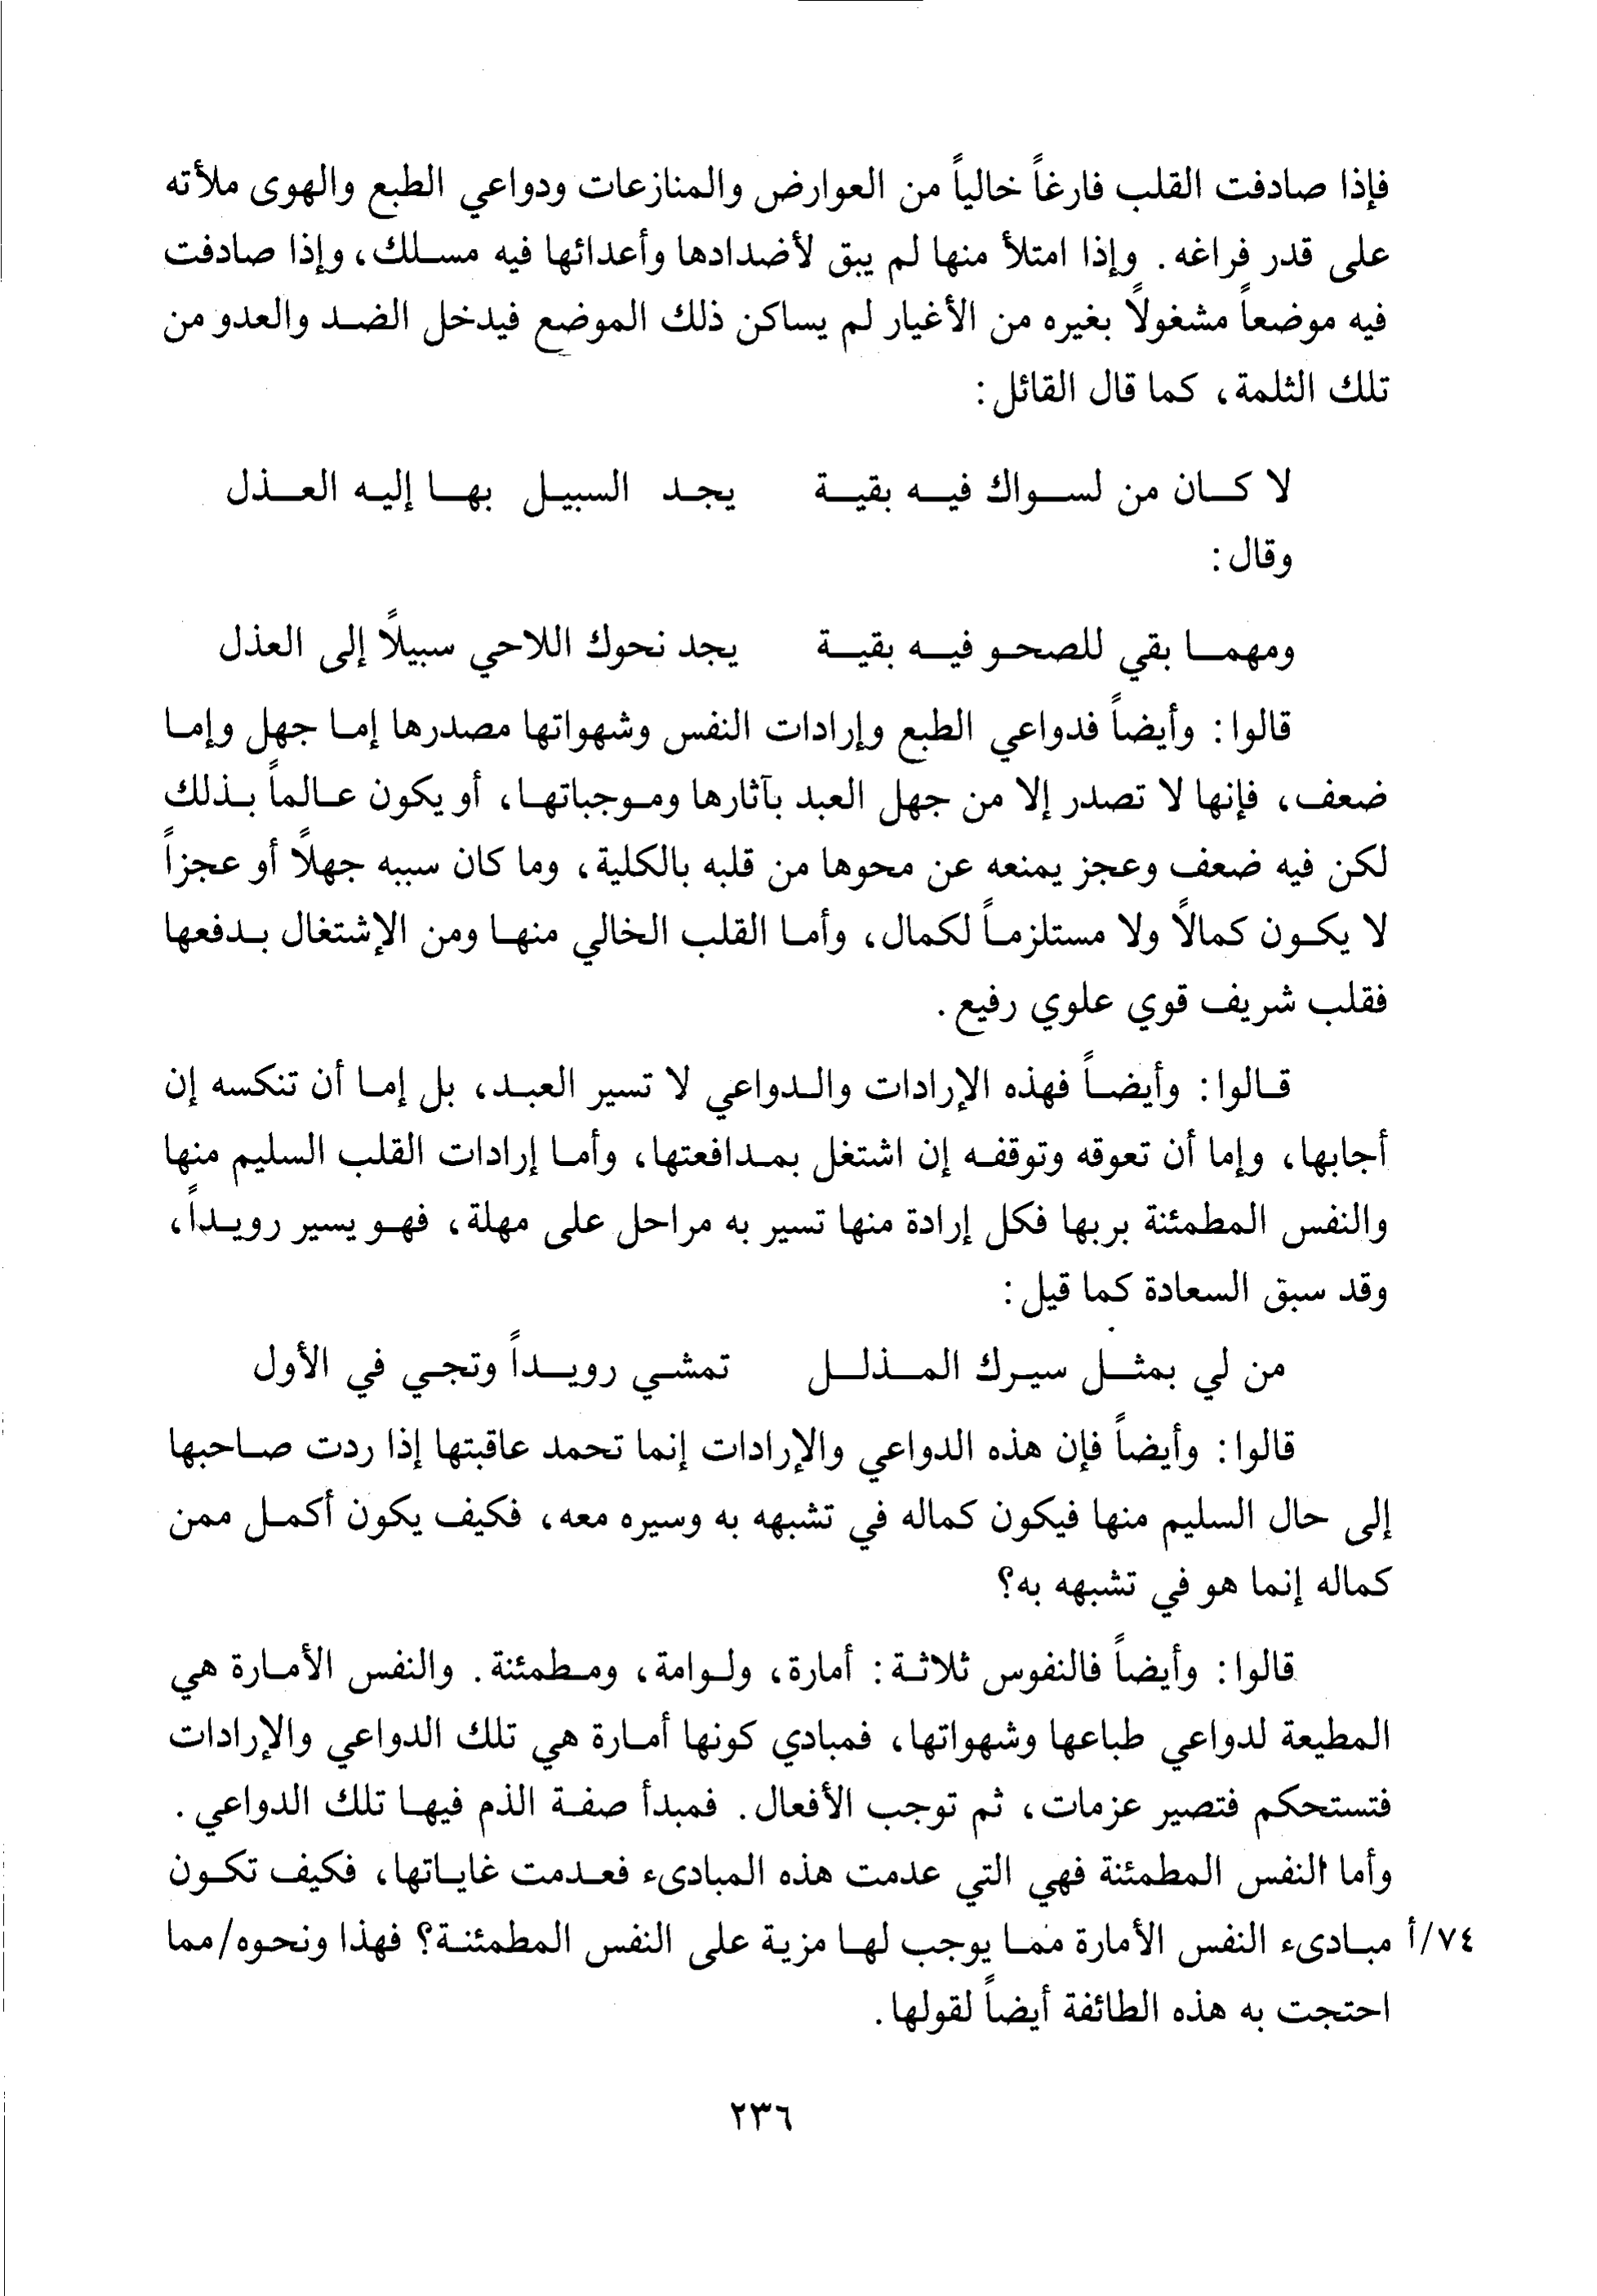 فإذا صادفت القلب فارغاً خالياً من العوارض والمنازعات ودواعي الطبع والهوى ملأته
على قدر فراغه. وإذا امتلأ منها لم يبق لأضدادها وأعدائها فيه مسلك، وإذا صادفت
فيه موضعاً مشغولاً بغيره من الأغيار لم يساكن ذلك الموضع فيدخل الضد والعدو من
تلك الثلمة، كما قال القائل:
لا كان من لسواك فيه بقية يجد السبيل بها إليه العذل
وقال:
ومهما بقي للصحو فيه بقية يجد نحوك اللاحي سبيلاً إلى العذل
قالوا: وأيضاً فدواعي الطبع وإرادات النفس وشهواتها مصدرها إما جهل وإما
ضعف، فإنها لا تصدر إلا من جهل العبد بآثارها وموجباتها، أو يكون عالماً بذلك
لكن فيه ضعف وعجز يمنعه عن محوها من قلبه بالكلية، وما كان سببه جهلاً أو عجزاً
لا يكون كمالاً ولا مستلزماً لكمال، وأما القلب الخالي منها ومن الإشتغال بدفعها
فقلب شريف قوي علوي رفيع.
قالوا: وأيضاً فهذه الإرادات والدواعي لا تسير العبد، بل إما أن تنكسه إن
أجابها، وإما أن تعوقه وتوقفه إن اشتغل بمدافعتها، وأما إرادات القلب السليم منها
والنفس المطمئنة بربها فكل إرادة منها تسير به مراحل على مهلة، فهو يسير رويداً،
وقد سبق السعادة كما قيل:
من لي بمثل سيرك المذلل تمشي رويداً وتجي في الأول
قالوا: وأيضاً فإن هذه الدواعي والإرادات إنما تحمد عاقبتها إذا ردت صاحبها
إلى حال السليم منها فيكون كماله في تشبهه به وسيره معه، فكيف يكون أكمل ممن
كماله إنما هو في تشبهه به؟
قالوا: وأيضاً فالنفوس ثلاثة: أمارة، ولوامة، ومطمئنة. والنفس الأمارة هي
المطيعة لدواعي طباعها وشهواتها، فمبادي كونها أمارة هي تلك الدواعي والإرادات
فتستحكم فتصير عزمات، ثم توجب الأفعال. فمبدأ صفة الذم فيها تلك الدواعي.
وأما النفس المطمئنة فهي التي عدمت هذه المبادىء فعدمت غاياتها، فكيف تكون
٧٤/أ مبادىء النفس الأمارة مما يوجب لها مزية على النفس المطمئنة؟ فهذا ونحوه/مما
احتجت به هذه الطائفة أيضاً لقولها.
٢٣٦